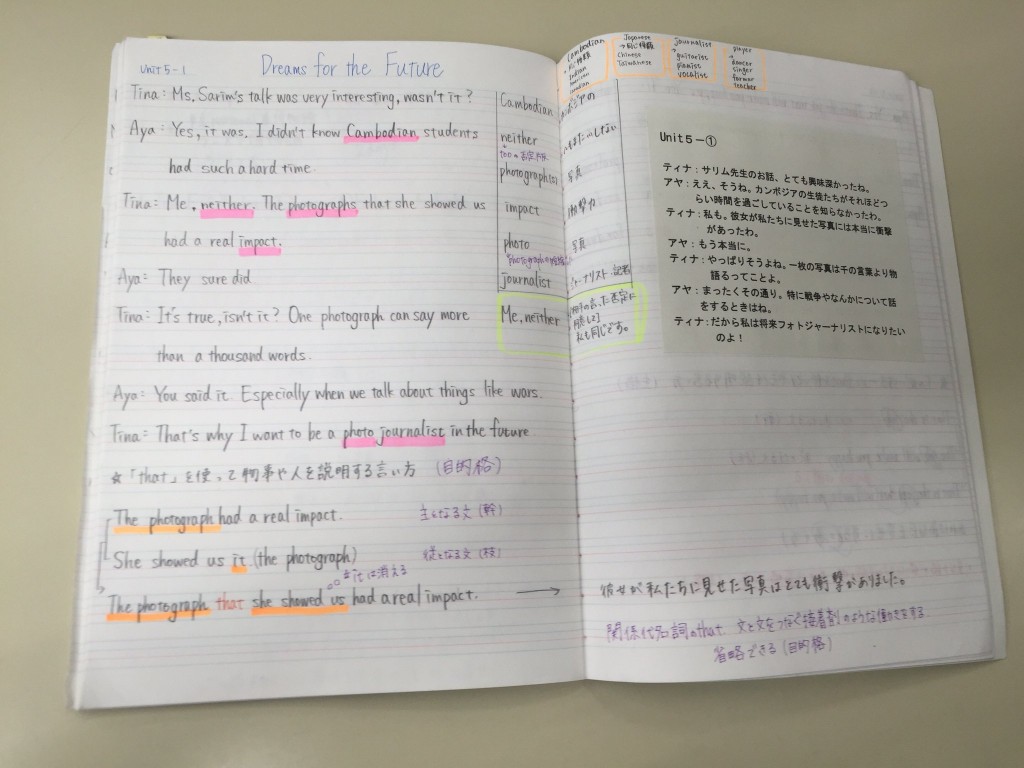 Unit 5-1 Dreams for the Future
Tina: Ms. Sarim's talk was very interesting, wasn't it?
Aya: Yes, it was. I didn't know Cambodian students
had such a hard time.
Tina: Me, neither. The photographs that she showed us
had a real impact.
Aya: They sure did
Tina: It's true, isn't it? One photograph can say more
than a thousand words.
Aya: You said it. Especially when we talk about things like wars.
Tina: That's why I want to be a photo journalist in the future
★「that」を使って物事や人を説明する言い方 (目的格)
The photograph had a real impact. 主となる文 (幹)
She showed us it. (the photograph) 従となる文 (枝)
itは消える
The photograph that she showed us had a real impact. →
Cambodian
neither
tooの否定形
photograph(s) 写真
impact 衝撃力
photo 写真
journalist ジャーナリスト・記者
Me, neither
私も同じです。
Cambodian
Japanese
→同じ種類
Chinese
Taiwanese
journalist
guitarist
pianist
vocalist
player
dancer
singer
farmer
teacher
Unit5-①
ティナ:サリム先生のお話、とても興味深かったね。
アヤ:ええ、そうね。カンボジアの生徒たちがそれほどつ
らい時間を過ごしていることを知らなかったわ。
ティナ:私も。彼女が私たちに見せた写真には本当に衝撃
があったわ。
アヤ:もう本当に。
ティナ:やっぱりそうよね。一枚の写真は千の言葉より物
語るってことよ。
アヤ:まったくその通り。特に戦争やなんかについて話
をするときはね。
ティナ:だから私は将来フォトジャーナリストになりたい
のよ!
彼女が私たちに見せた写真はとても衝撃がありました。
関係代名詞のthat 文と文をつなぐ接着剤のような働きをする
省略できる(目的格)